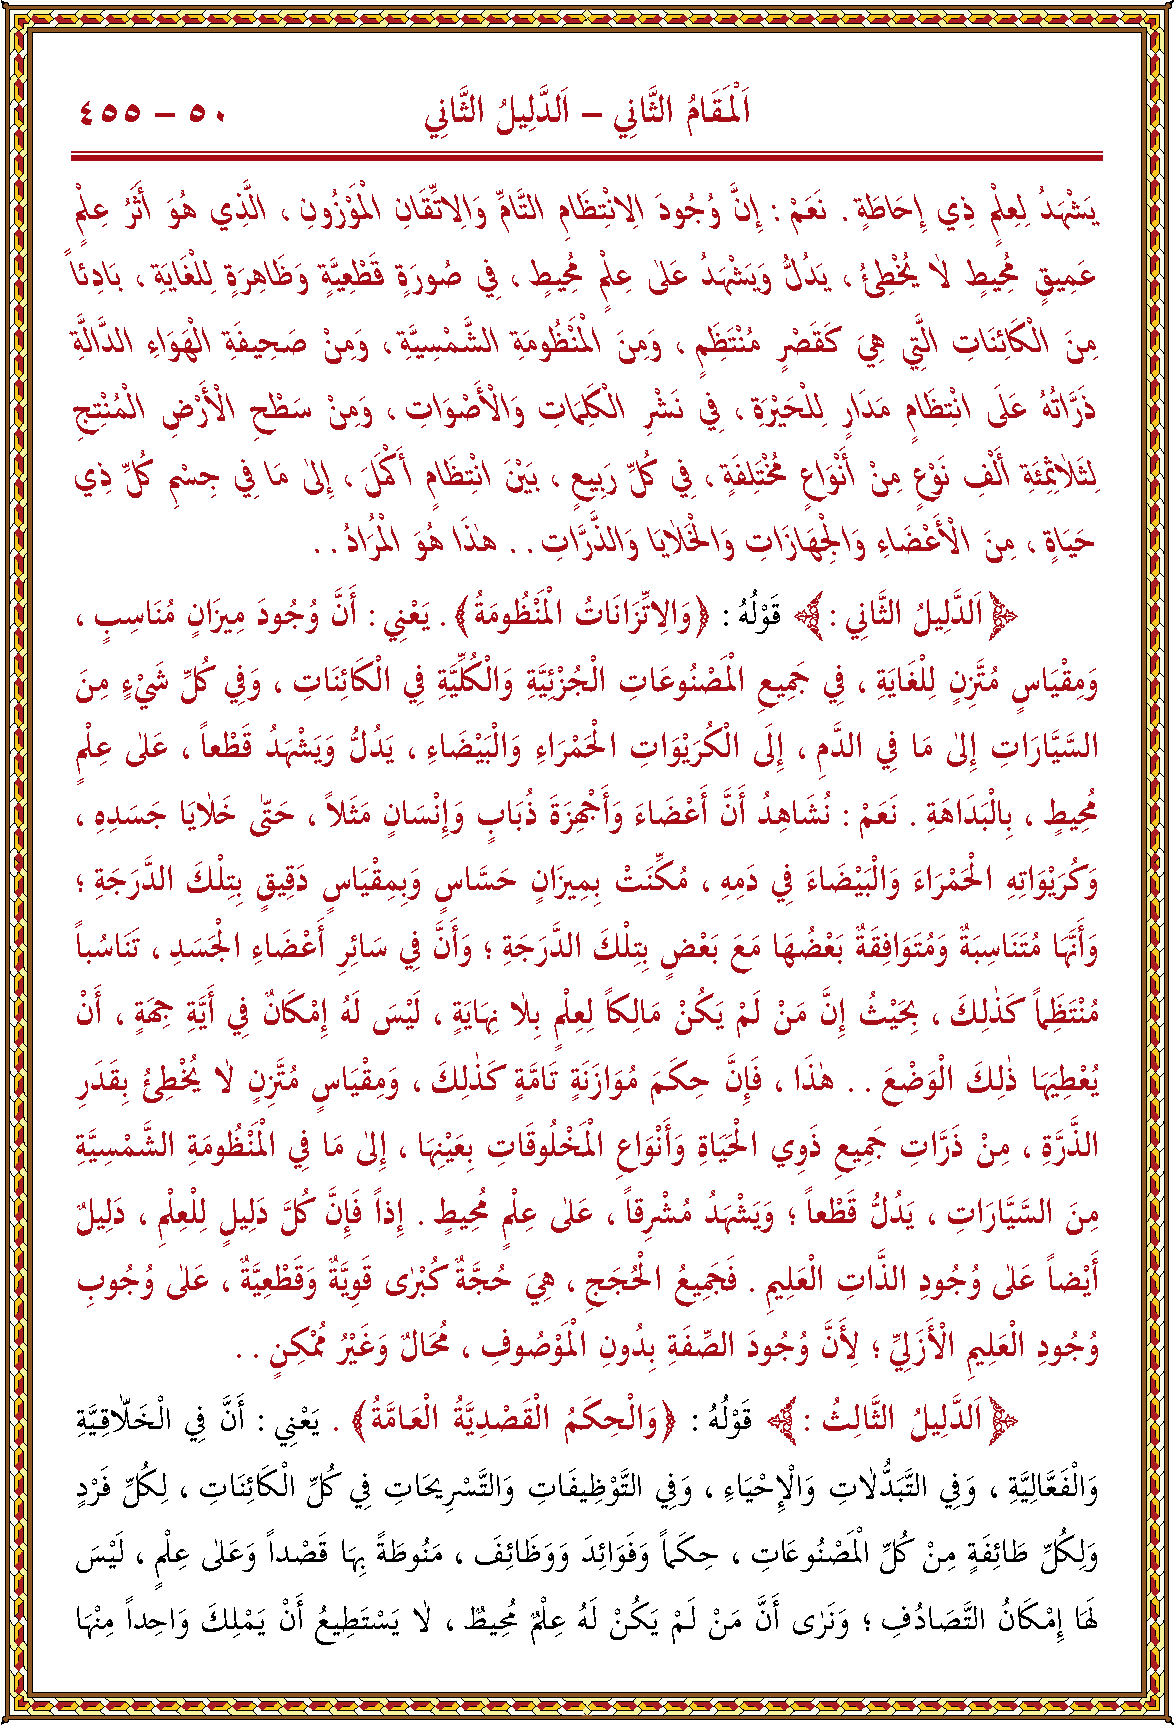 اَلْمَقَامُ الثَّانِي – اَلدَّلِيلُ الثَّانِي ٥٠ – ٤٥٥
يَشْهَدُ لِعِلْمٍ ذِي إِحَاطَةٍ . نَعَمْ : إِنَّ وُجُودَ الِانْتِظَامِ التَّامِّ وَالِاتِّقَانِ الْمَوْزُونِ ، الَّذِي هُوَ أَثَرُ عِلْمٍ
عَمِيقٍ مُحِيطٍ لَا يُخْطِئُ ، يَدُلُّ وَيَشْهَدُ عَلَى عِلْمٍ مُحِيطٍ ، فِي صُورَةٍ قَطْعِيَّةٍ وَظَاهِرَةٍ لِلْغَايَةِ ، بَادِئاً
مِنَ الْكَائِنَاتِ الَّتِي هِيَ كَقَصْرٍ مُنْتَظَمٍ ، وَمِنَ الْمَنْظُومَةِ الشَّمْسِيَّةِ ، وَمِنْ صَحِيفَةِ الْهَوَاءِ الدَّالَّةِ
ذَرَّاتُهُ عَلَى انْتِظَامٍ مَدَارٍ لِلْحَيْرَةِ ، فِي نَشْرِ الْكَلِمَاتِ وَالْأَصْوَاتِ ، وَمِنْ سَطْحِ الْأَرْضِ الْمُنْتِجِ
لِثَلَاثِمِئَةِ أَلْفِ نَوْعٍ مِنْ أَنْوَاعٍ مُخْتَلِفَةٍ ، فِي كُلِّ رَبِيعٍ ، بَيْنَ انْتِظَامٍ أَكْمَلَ ، إِلَى مَا فِي جِسْمِ كُلِّ ذِي
حَيَاةٍ ، مِنَ الْأَعْضَاءِ وَالْجِهَازَاتِ وَالْخَلَايَا وَالذَّرَّاتِ . . هٰذَا هُوَ الْمُرَادُ . .
﴿اَلدَّلِيلُ الثَّانِي : ﴾ قَوْلُهُ : ﴿وَالِاتِّزَانَاتُ الْمَنْظُومَةُ﴾ . يَعْنِي : أَنَّ وُجُودَ مِيزَانٍ مُنَاسِبٍ ،
وَمِقْيَاسٍ مُتَّزِنٍ لِلْغَايَةِ ، فِي جَمِيعِ الْمَصْنُوعَاتِ الْجُزْئِيَّةِ وَالْكُلِّيَّةِ فِي الْكَائِنَاتِ ، وَفِي كُلِّ شَيْءٍ مِنَ
السَّيَّارَاتِ إِلَى مَا فِي الدَّمِ ، إِلَى الْكُرَيْوَاتِ الْحَمْرَاءِ وَالْبَيْضَاءِ ، يَدُلُّ وَيَشْهَدُ قَطْعاً ، عَلَى عِلْمٍ
مُحِيطٍ ، بِالْبَدَاهَةِ . نَعَمْ : نُشَاهِدُ أَنَّ أَعْضَاءَ وَأَجْهِزَةَ ذُبَابٍ وَإِنْسَانٍ مَثَلاً ، حَتَّى خَلَايَا جَسَدِهِ ،
وَكُرَيْوَاتِهِ الْحَمْرَاءَ وَالْبَيْضَاءَ فِي دَمِهِ ، مُكِّنَتْ بِمِيزَانٍ حَسَّاسٍ وَبِمِقْيَاسٍ دَقِيقٍ بِتِلْكَ الدَّرَجَةِ ؛
وَأَنَّهَا مُتَنَاسِبَةٌ وَمُتَوَافِقَةٌ بَعْضُهَا مَعَ بَعْضٍ بِتِلْكَ الدَّرَجَةِ ؛ وَأَنَّ فِي سَائِرِ أَعْضَاءِ الْجَسَدِ ، تَنَاسُباً
مُنْتَظِماً كَذٰلِكَ ، بِحَيْثُ إِنَّ مَنْ لَمْ يَكُنْ مَالِكاً لِعِلْمٍ بِلَا نِهَايَةٍ ، لَيْسَ لَهُ إِمْكَانٌ فِي أَيَّةِ جِهَةٍ ، أَنْ
يُعْطِيَهَا ذٰلِكَ الْوَضْعَ . . هٰذَا ، فَإِنَّ حِكَمَ مُوَازَنَةٍ تَامَّةٍ كَذٰلِكَ ، وَمِقْيَاسٍ مُتَّزِنٍ لَا يُخْطِئُ بِقَدَرِ
الذَّرَّةِ ، مِنْ ذَرَّاتِ جَمِيعِ ذَوِي الْحَيَاةِ وَأَنْوَاعِ الْمَخْلُوقَاتِ بِعَيْنِهَا ، إِلَى مَا فِي الْمَنْظُومَةِ الشَّمْسِيَّةِ
مِنَ السَّيَّارَاتِ ، يَدُلُّ قَطْعاً ؛ وَيَشْهَدُ مُشْرِقاً ، عَلَى عِلْمٍ مُحِيطٍ . إِذاً فَإِنَّ كُلَّ دَلِيلٍ لِلْعِلْمِ ، دَلِيلٌ
أَيْضاً عَلَى وُجُودِ الذَّاتِ الْعَلِيمِ . فَجَمِيعُ الْحُجَجِ ، هِيَ حُجَّةٌ كُبْرَى قَوِيَّةٌ وَقَطْعِيَّةٌ ، عَلَى وُجُوبِ
وُجُودِ الْعَلِيمِ الْأَزَلِيِّ ؛ لِأَنَّ وُجُودَ الصِّفَةِ بِدُونِ الْمَوْصُوفِ ، مُحَالٌ وَغَيْرُ مُمْكِنٍ . .
﴿اَلدَّلِيلُ الثَّالِثُ : ﴾ قَوْلُهُ : ﴿وَالْحِكَمُ الْقَصْدِيَّةُ الْعَامَّةُ﴾ . يَعْنِي : أَنَّ فِي الْخَلَّاقِيَّةِ
وَالْفَعَّالِيَّةِ ، وَفِي التَّبَدُّلَاتِ وَالْإِحْيَاءِ ، وَفِي التَّوْظِيفَاتِ وَالتَّسْرِيحَاتِ فِي كُلِّ الْكَائِنَاتِ ، لِكُلِّ فَرْدٍ
وَلِكُلِّ طَائِفَةٍ مِنْ كُلِّ الْمَصْنُوعَاتِ ، حِكَماً وَفَوَائِدَ وَوَظَائِفَ ، مَنُوطَةً بِهَا قَصْداً وَعَلَى عِلْمٍ ، لَيْسَ
لَهَا إِمْكَانُ التَّصَادُفِ ؛ وَنَرَى أَنَّ مَنْ لَمْ يَكُنْ لَهُ عِلْمٌ مُحِيطٌ ، لَا يَسْتَطِيعُ أَنْ يَمْلِكَ وَاحِداً مِنْهَا